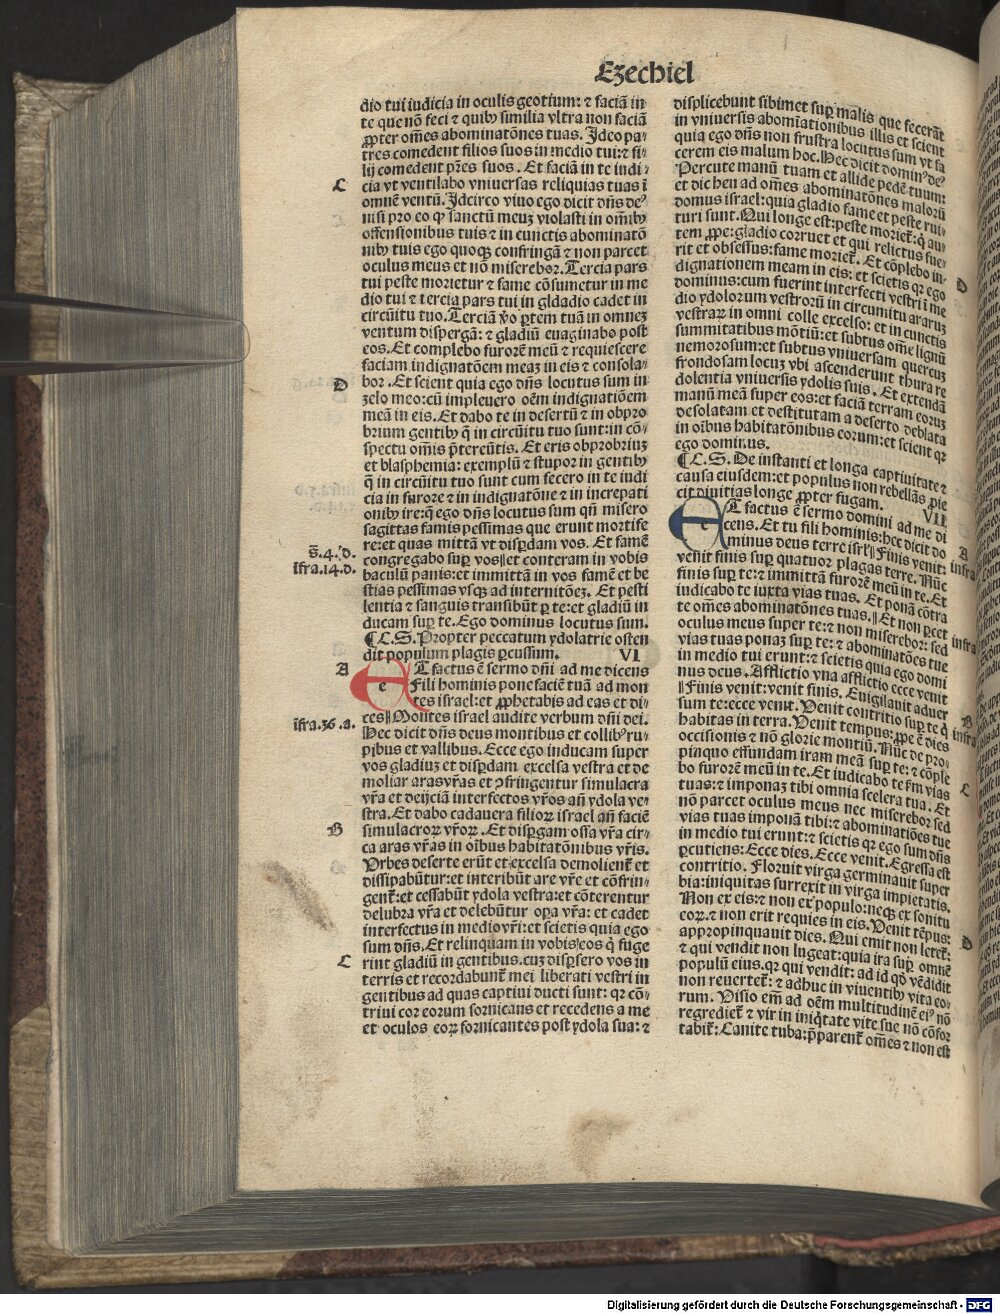 Ezechiel
dio tui iudicia in oculis gẽtium: ⁊ faciã in
te que nõ feci ⁊ quibꝰ similia vltra non faciã
ꝓpter om̃es abominatõnes tuas. Ideo pa-
tres comedent filios suos in medio tui:⁊ fi-
lij comedent pr̃es suos. Et faciã in te iudi-
C
cia ⁊ ventilabo vniuersas reliquias tuas ĩ
omnẽ ventũ. Idcirco viuo ego dicit dñs deꝰ
nisi pro eo ꝙ sanctũ meuꝫ violasti in oĩbꝰ
offensionibus tuis ⁊ in cunctis abominatõ
nibꝰ tuis ego quoqꝫ confringã ⁊ non parcet
oculus meus et nõ miserebor. Tercia pars
tui peste morietur ⁊ fame cõsumetur in me
dio tui ⁊ tercia pars tui in gldadio cadet in
circũitu tuo. Terciã ṽo ꝑtem tuã in omneꝫ
ventum dispergã: ⁊ gladiũ euaginabo post
eos. Et complebo furorẽ meũ ⁊ requiescere
faciam indignatõem meaꝫ in eis ⁊ consola-
D
bor. Et scient quia ego dñs locutus sum in
zelo meo:cũ impleuero oẽm indignatiõem
meã in eis. Et dabo te in desertũ ⁊ in obpro
brium gentibꝰ q̃ in circũitu tuo sunt:in cõ-
spectu om̃is p̃tereũtis. Et eris obprobriuꝫ
et blasphemia: exemplũ ⁊ stupor in gentibꝰ
q̃ in circũitu tuo sunt cum fecero in te iudi
cia in furore ⁊ in indignatõne ⁊ in increpati
onibꝰ ire:q̃ ego dñs locutus sum qñ misero
sagittas famis pessimas que erunt mortife
re:et quas mittã vt disꝑdam vos. Et famẽ
s̃.4.d.
congregabo suꝑ vos‖et conteram in vobis
ĩfra.14.d.
baculũ panis:et immittã in vos famẽ et be
stias pessimas vsqꝫ ad internitõeꝫ. Et pesti
lentia ⁊ sanguis transibũt ꝑ te:et gladiũ in
ducam suꝑ te. Ego dominus locutus sum.
¶C.S. Propter peccatum ydolatrie osten
dit populum plagis ꝑcussum. VI
A
Et factus ẽ sermo dñi ad me dicens
Fili hominis pone faciẽ tuã ad mon
tes israel:et ꝓphetabis ad eas et di-
ĩfra.36.a.
ces‖Montes israel audite verbum dñi dei.
Hec dicit dñs deus montibus et collibꝰ ru-
pibus et vallibus. Ecce ego inducam super
vos gladiuꝫ et disꝑdam excelsa vestra et de
moliar aras vr̃as et ↄfringentur simulacra
vr̃a et deijciã interfectos vr̃os añ ydola ve-
stra. Et dabo cadauera filioꝝ israel añ faciẽ
B
simulacroꝝ vr̃oꝝ. Et disꝑgam ossa vr̃a cir-
ca aras vr̃as in oĩbus habitatõnibus vr̃is.
Vrbes deserte erũt et excelsa demolient̃ et
dissipabũtur:et interibũt are vr̃e et cõfrin-
gent̃:et cessabũt ydola vestra:et cõterentur
delubra vr̃a et delebũtur oꝑa vr̃a: et cadet
interfectus in medio vr̃i:et scietis quia ego
sum dñs. Et relinquam in vobis eos q̃ fuge
C
rint gladiũ in gentibus.cuꝫ disꝑsero vos in
terris et recordabunt̃ mei liberati vestri in
gentibus ad quas captiui ducti sunt: qꝛ cõ-
triui cor eorum fornicans et recedens a me
et oculos eoꝝ fornicantes post ydola sua: ⁊
displicebunt sibimet suꝑ malis que fecerãt
in vniuersis abomĩationibus illis et scient
quia ego dñs non frustra locutus sum vt fa
cerem eis malum hoc. Hec dicit dominꝰ deꝰ
Percute manũ tuam et allide pedẽ tuum:
et dic heu ad om̃es abominatõnes malorũ
domus israel:quia gladio fame et peste rui-
turi sunt. Qui longe est:peste moriet̃:q̃ au-
tem ꝓpe:gladio corruet et qui relictus fue-
rit et obsessus:fame moriet̃. Et cõplebo in-
D
dignationem meam in eis: et scietis qꝛ ego
dominus:cum fuerint interfecti vestri ĩ me
dio ydolorum vestrorũ in circuitu araruꝫ
vestraꝝ in omni colle excelso: et in cunctis
summitatibus mõtiũ:et subtus om̃e lignũ
nemorosum:et subtus vniuersam quercuꝫ
frondosam locuꝫ vbi ascenderunt thura re
dolentia vniuersis ydolis suis. Et extendã
manũ meã super eos:et faciã terram eoruꝫ
desolatam et destitutam a deserto deblata
in oĩbus habitatõnibus eorum:et scient qꝛ
ego dominus.
¶C.S. De instanti et longa captiuitate ⁊
causa eiusdem:et populus non rebellãs ꝓie
cit diuitias longe ꝓpter fugam. VII
Et factus ẽ sermo domini ad me di
A
cens. Et tu fili hominis:hec dicit do
minus deus terre isrl̃‖Finis venit:
infra
venit finis suꝑ quatuor plagas terre. Nũc
finis suꝑ te:⁊ immittã furorẽ meũ in te. Et
iudicabo te iuxta vias tuas. Et ponã cõtra
te om̃es abominatõnes tuas.‖Et non ꝑcet
infra
oculus meus super te:⁊ non miserebor: sed
vias tuas ponaꝫ suꝑ te:⁊ abominatões tue
in medio tui erunt:⁊ scietis quia ego domi
nus deus. Afflictio vna afflictio ecce venit
‖Finis venit:venit finis. Euigilauit aduer
B
sum te:ecce venit. Venit contritio suꝑ te q̃
infra
habitas in terra. Venit tempus:ꝓpe ẽ dies
occisionis ⁊ nõ glorie montiũ. Nũc de pro-
pinquo effundam iram meã suꝑ te: ⁊ cõple
bo furorẽ meũ in te. Et iudicabo te ẜm vias
C
tuas:⁊ imponaꝫ tibi omnia scelera tua. Et
nõ parcet oculus meus nec miserebor sed
vias tuas imponã tibi:⁊ abominatiões tue
in medio tui erunt:⁊ scietis qꝛ ego sum dñs
ꝑcutiens: Ecce dies. Ecce venit. Egressa est
contritio. Floruit virga germinauit super
bia:iniquitas surrexit in virga impietatis.
Non ex eis:⁊ non ex populo:neqꝫ ex sonitu
eoꝝ:⁊ non erit requies in eis. Venit tẽpus:
D
appropinquauit dies. Qui emit non letet̃:
⁊ qui vendit non lugeat:quia ira suꝑ omnẽ
populũ eius.qꝛ qui vendit: ad id qđ vẽdidit
non reuertet̃: ⁊ adhuc in viuentibꝰ vita eo-
rum. Visio em̃ ad oẽm multitudinẽ eiꝰ nõ
regrediet̃ ⁊ vir in iniq̃tate vite sue nõ cõfor
tabit̃:Canite tuba:p̃parent̃ om̃es ⁊ non est
Digitalisierung gefördert durch die Deutsche Forschungsgemeinschaft - DFG